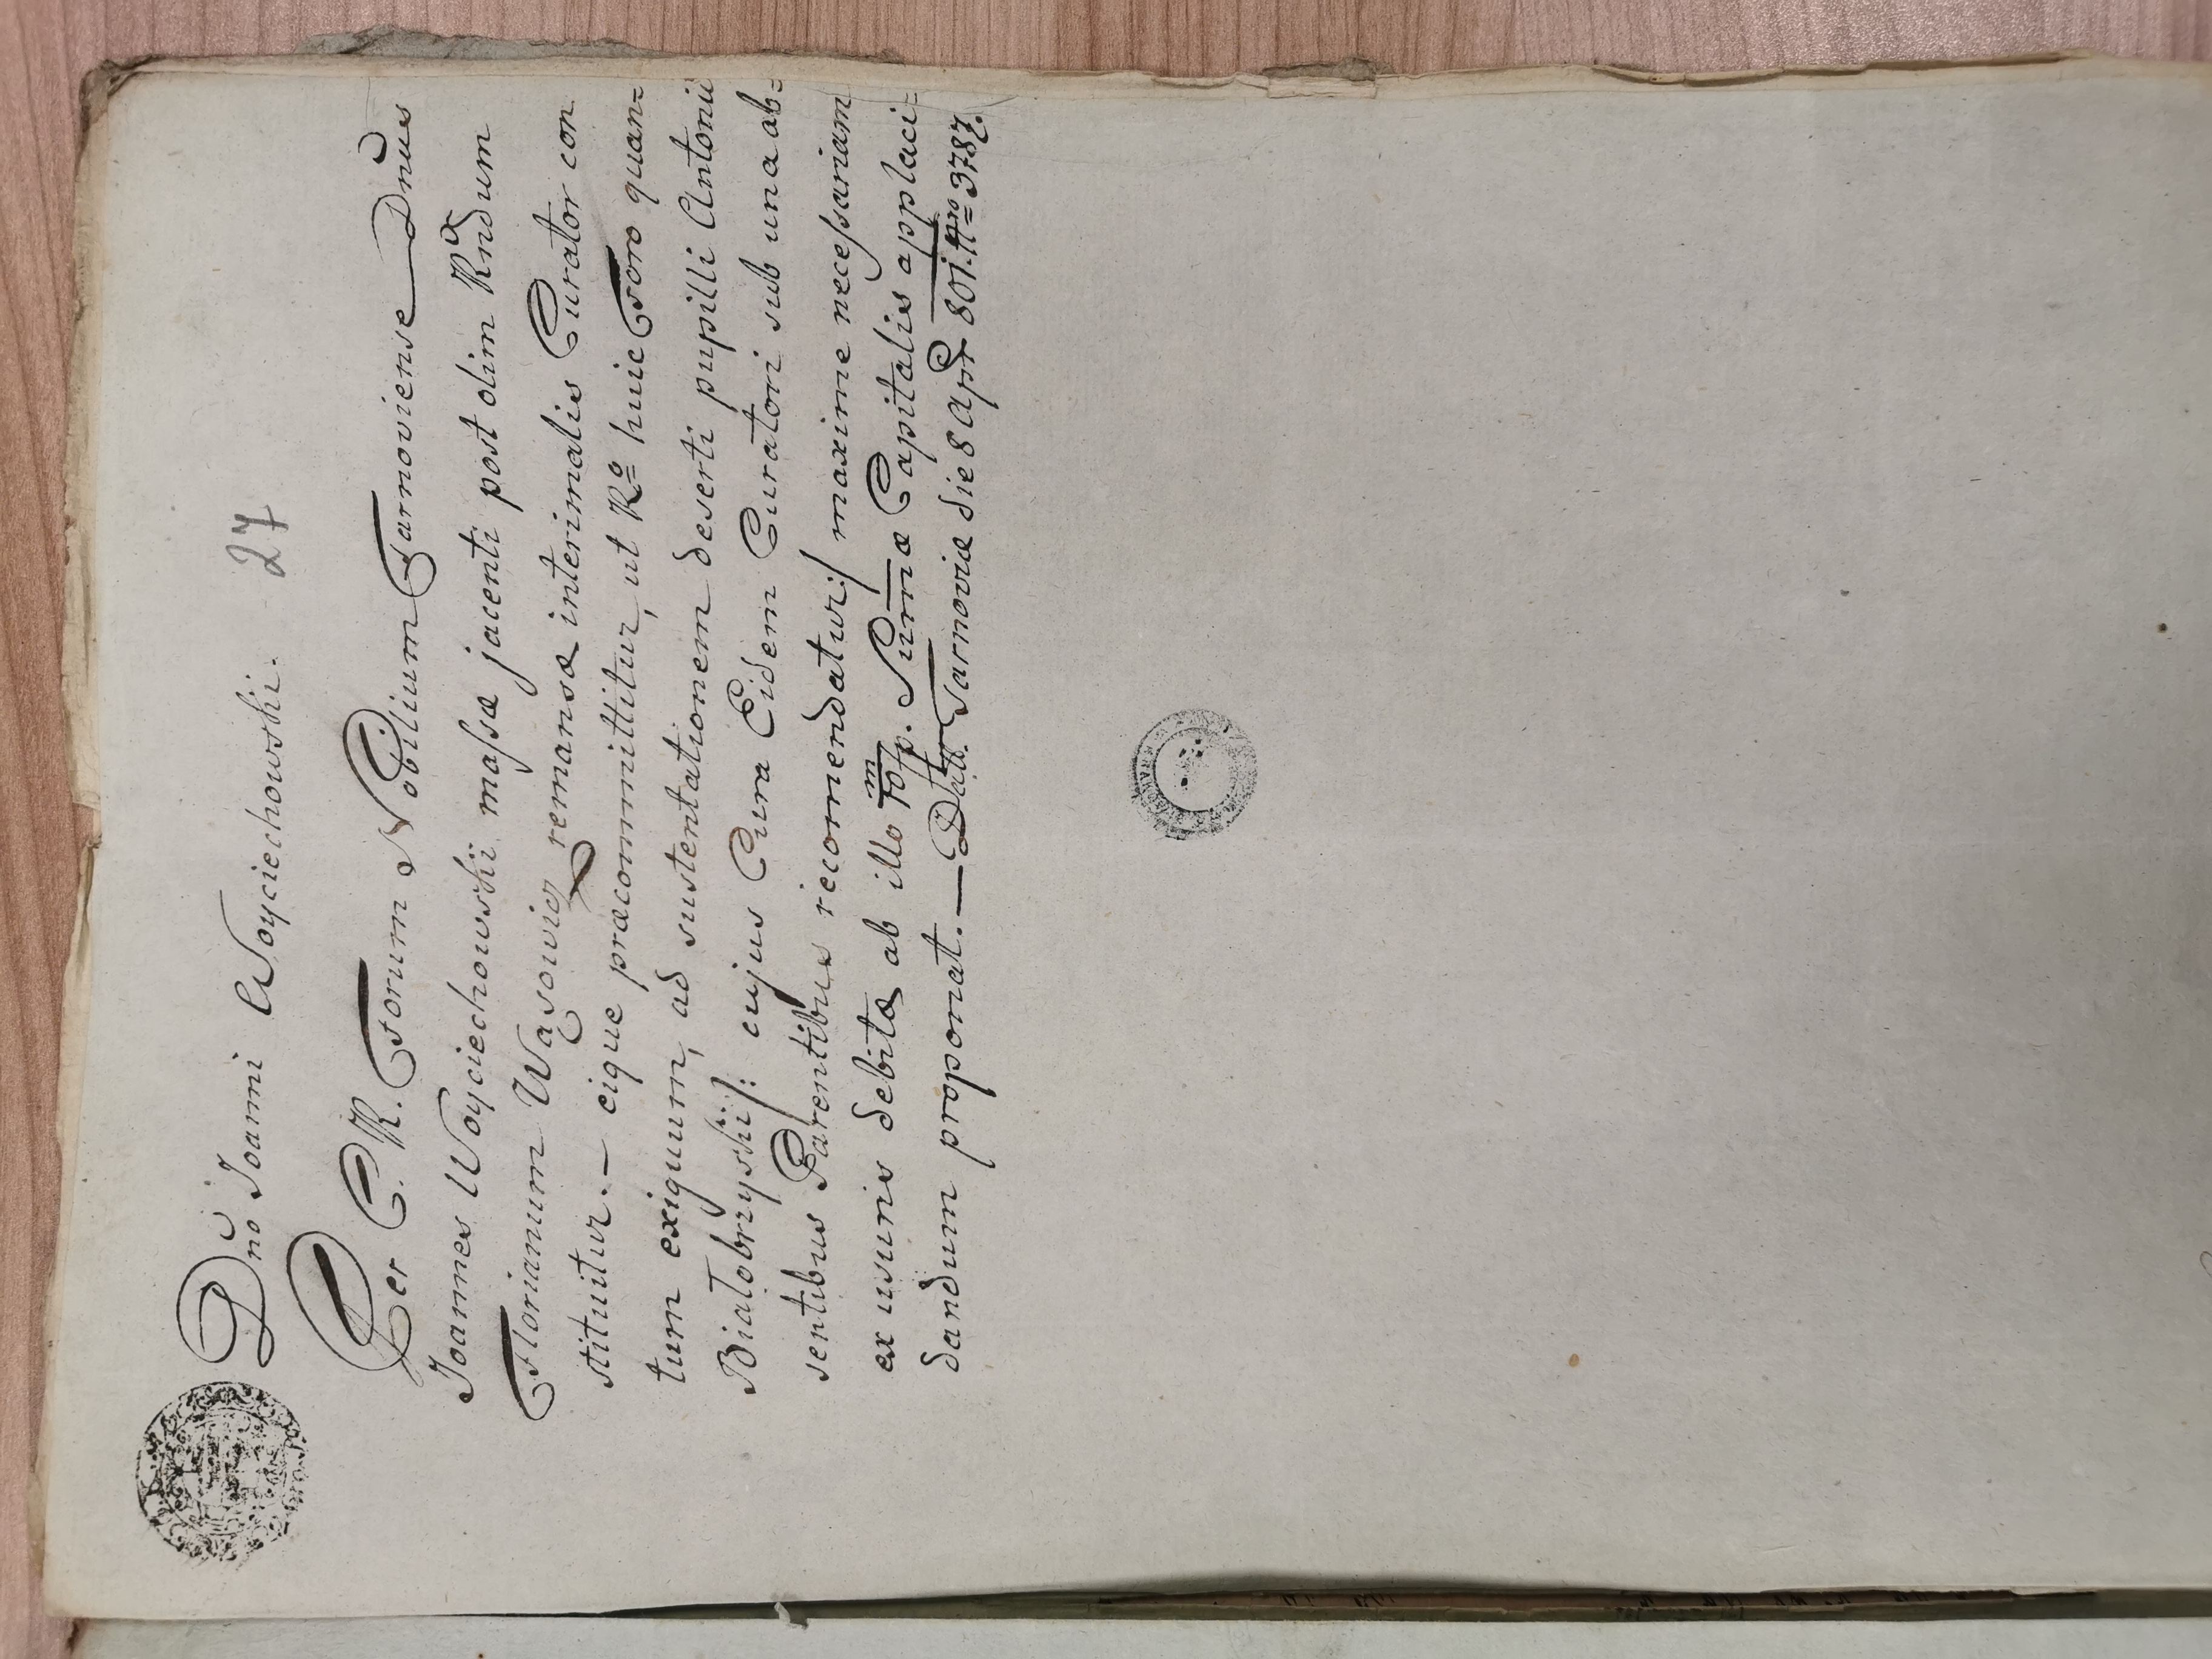 27
Dno Joanni Woyciechowski.
Per C. R. Forum Nobilium Tarnoviense Dnus
Joannes Woyciechowskii massæ jacenti post olim Rndum
Florianum Wąsowicz remansæ interimalis Curator con
stituitur. — eique præcommittitur, ut Rº huic Foro quan=
tum exiguum, ad sustentationem deserti pupilli Antonii
Białobrzyskii /: cujus Cura Eidem Curatori sub una ab=
sentibus Parentibus recomendatur :/ maxime necessariam
ex usuris debitæ ab illo 10/m fp. Summæ Capitalis applaci=
dandum proponat. — Datt. Tarnoviæ die 8 Apr 801. Nro 3787.